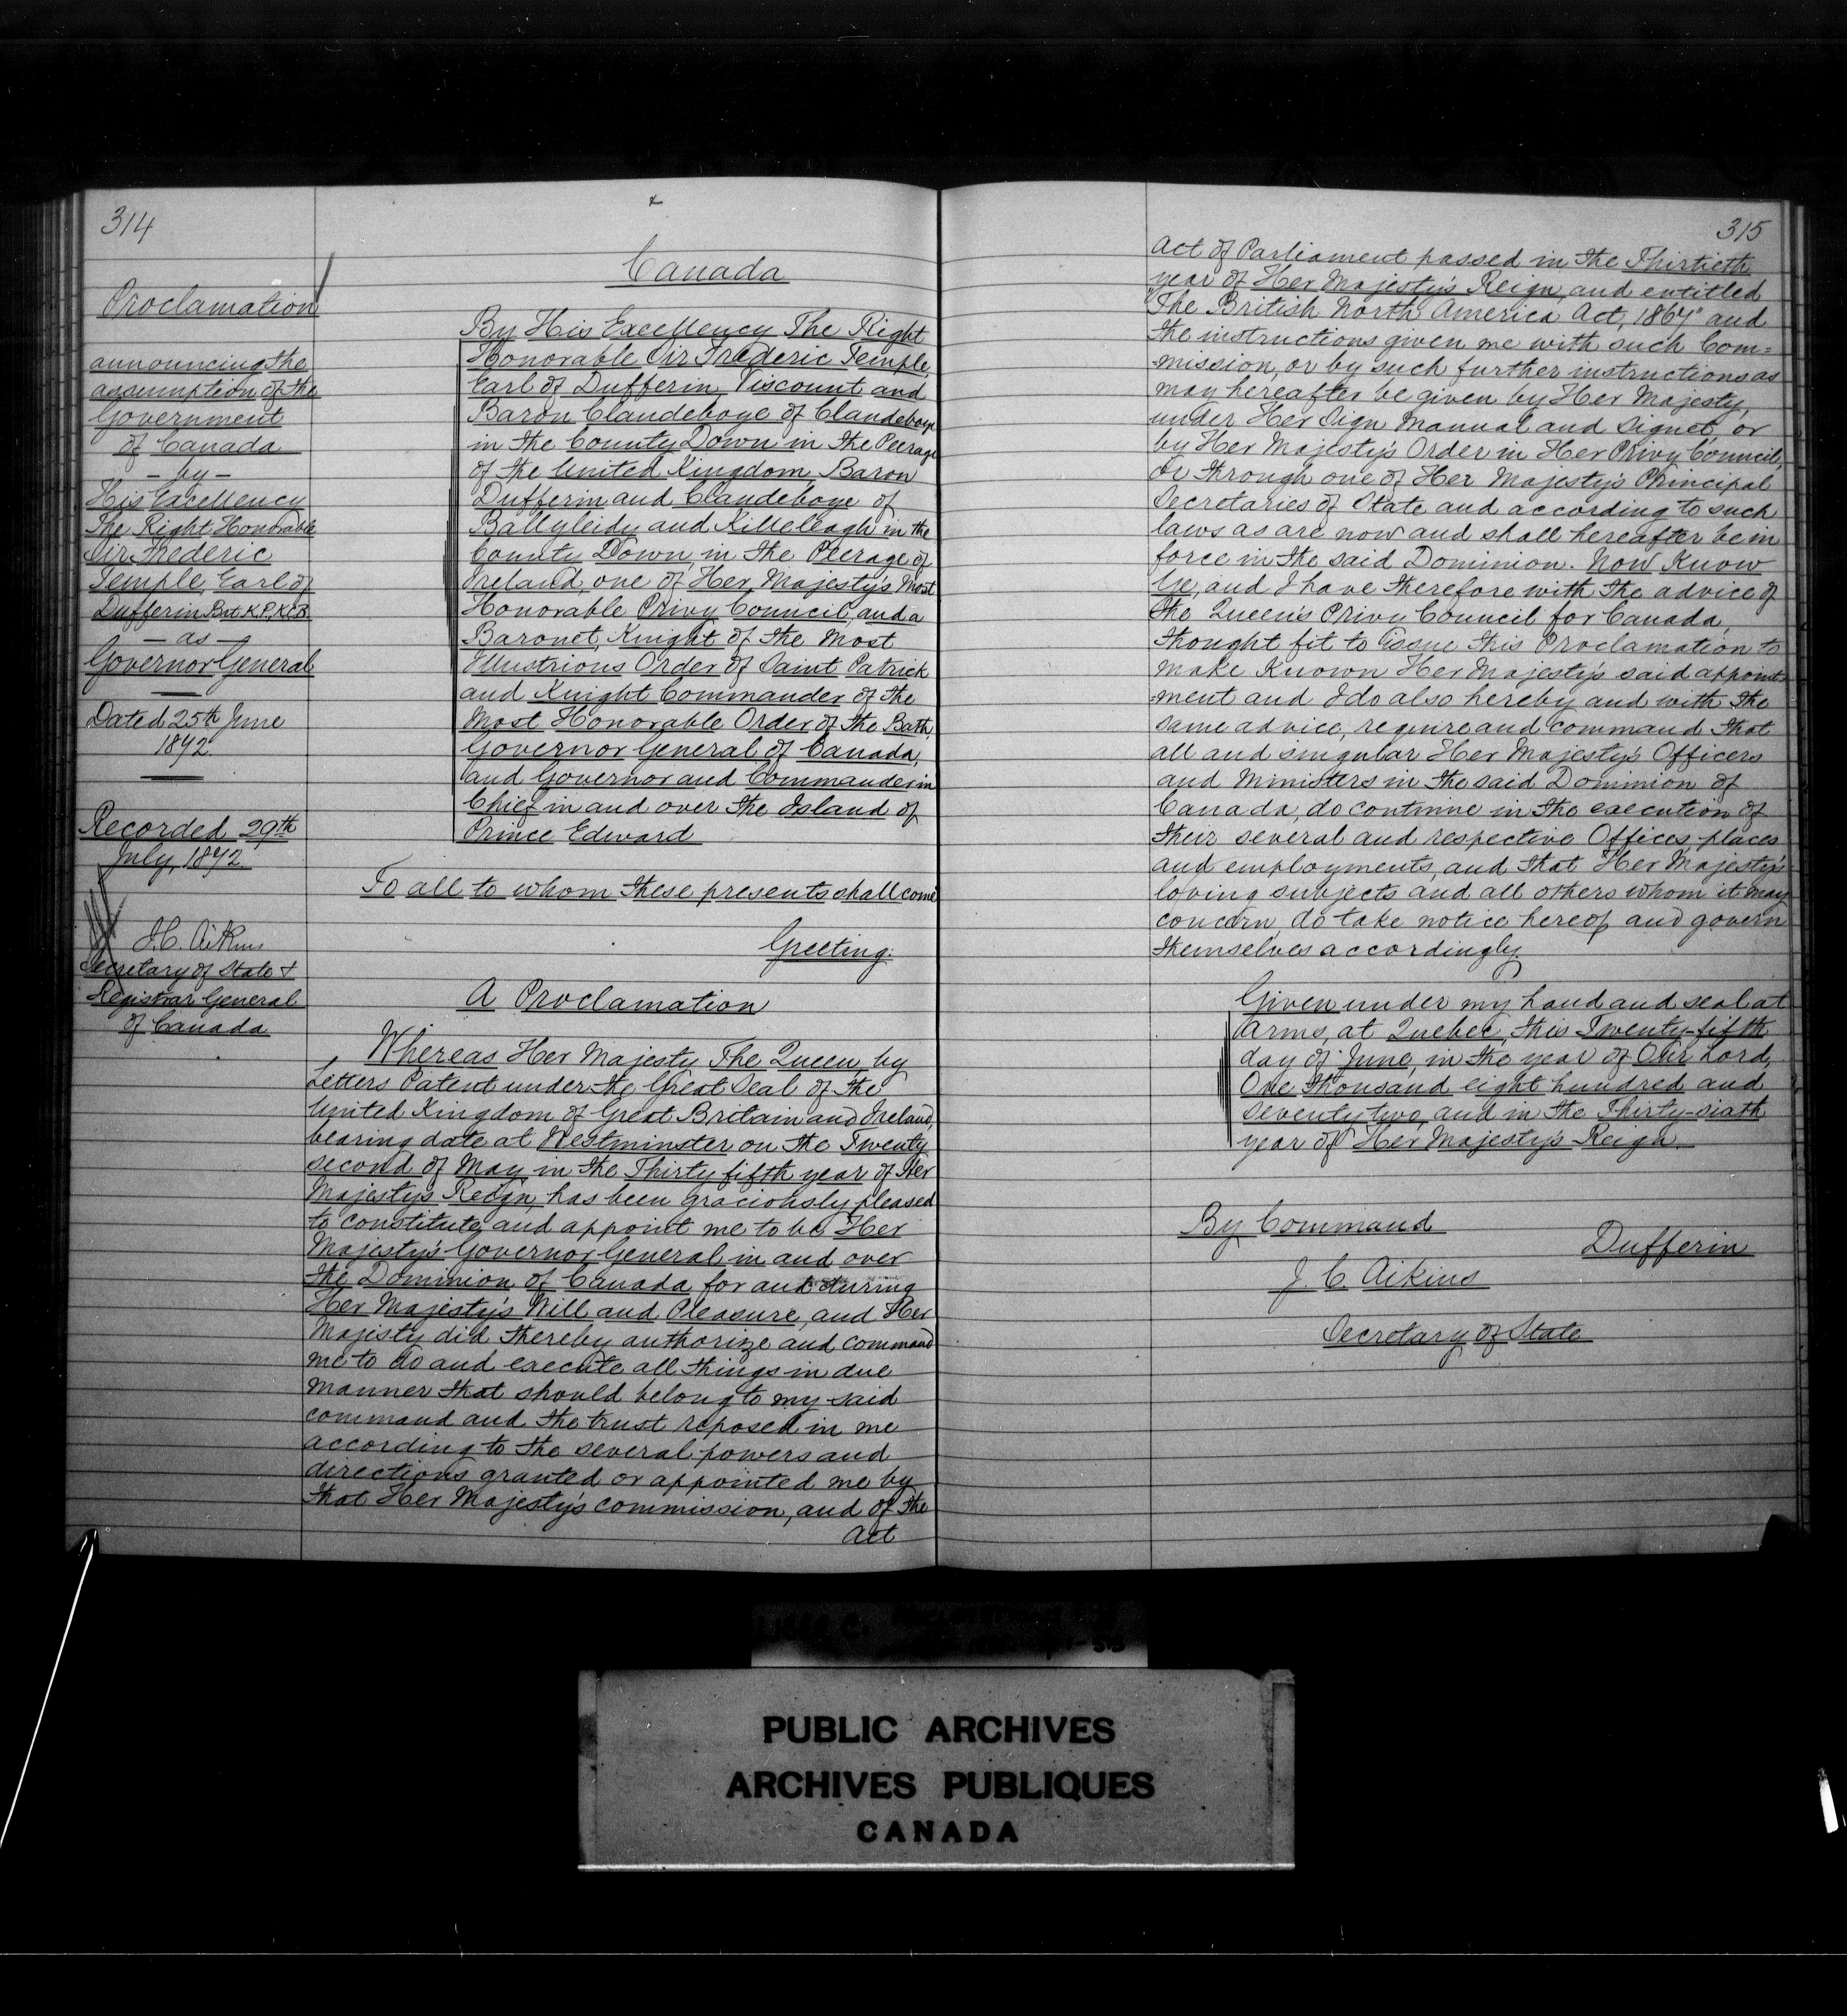 314
Proclamation
announcing the
assumption of the
Government
of Canada
- by -
His Excellency
The Right Honorable
Sir Frederic
Temple, Earl of
Dufferin Bart K.P., K.C.B.
- as -
Governor General
Dated 25th June
1872.
Recorded 29th
July, 1872.
J.C. Aikins
Secretary of State &
Registrar General
of Canada
Canada
By His Excellency The Right
Honorable Sir Frederic Temple,
Earl of Dufferin, Viscount and
Baron Clandeboye of Clandeboye
in the County Down in the Peerage
of the United Kingdom, Baron
Dufferin and Clandeboye of
Ballyleidy and Killeleagh in the
County Down, in the Peerage of
Ireland, one of Her Majesty's Most
Honorable Privy Council, and a
Baronet, Knight of the Most
Illustrious Order of Saint Patrick
and Knight Commander of the
Most Honorable Order of the Bath,
Governor General of Canada,
and Governor and Commander in
Chief in and over the Island of
Prince Edward
To all to whom these presents shall come
Greeting:
A Proclamation
Whereas Her Majesty The Queen, by
Letters Patent under the Great Seal of the
United Kingdom of Great Britain and Ireland,
bearing date at Westminster on the Twenty
second of May, in the Thirty fifth year of Her
Majesty's Reign, has been graciously pleased
to constitute and appoint me to be Her
Majesty's Governor General in and over
the Dominion of Canada for and during
Her Majesty's Will and Pleasure, and Her
Majesty did thereby authorize and command
me to do and execute all things in due
manner that should belong to my said
command and the trust reposed in me
according to the several powers and
directions granted or appointed me by
that Her Majesty's commission, and of the
Act
315
Act of Parliament passed in the Thirtieth
year of Her Majesty's Reign, and entitled
"The British North America Act, 1867" and
the instructions given me with such Com=
mission, or by such further instructions as
may hereafter be given by Her Majesty,
under Her Sign Manual and Signet, or
by Her Majesty's Order in Her Privy Council,
or through one of Her Majesty's Principal
Secretaries of State and according to such
laws as are now and shall hereafter be in
force in the said Dominion. Now Know
Ye, and I have therefore with the advice of
the Queen's Privy Council for Canada,
thought fit to issue this Proclamation to
make Known Her Majesty's said appoint=
=ment and I do also hereby and with the
same advice, require and command that
all and singular Her Majesty's Officers
and Ministers in the said Dominion of
Canada, do continue in the execution of
their several and respective Offices, places
and employments, and that Her Majesty's
loving subjects and all others whom it may
concern, do take notice, hereof and govern
themselves accordingly.
Given under my hand and seal at
Arms, at Quebec, this Twenty-fifth
day of June, in the year of Our Lord,
One thousand eight hundred and
seventy two, and in the Thirty-sixth
year of Her Majesty's Reign.
By Command
Dufferin
J. C. Aikins
Secretary of State
PUBLIC ARCHIVES
ARCHIVES PUBLIQUES
CANADA